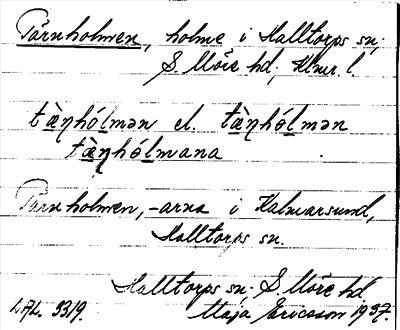 Tärnholmen, holme i Halltorps sn,
S. Möre hd, Klmr l.
tæ̀ŋhólmən el. tæ̀ŋhólmən
tæ̀ŋhólmana
Tärnholmen, -arna i Kalmarsund,
Halltorps sn.
Halltorps sn. S. Möre hd
LAL 3319. Maja Ericsson 1937.